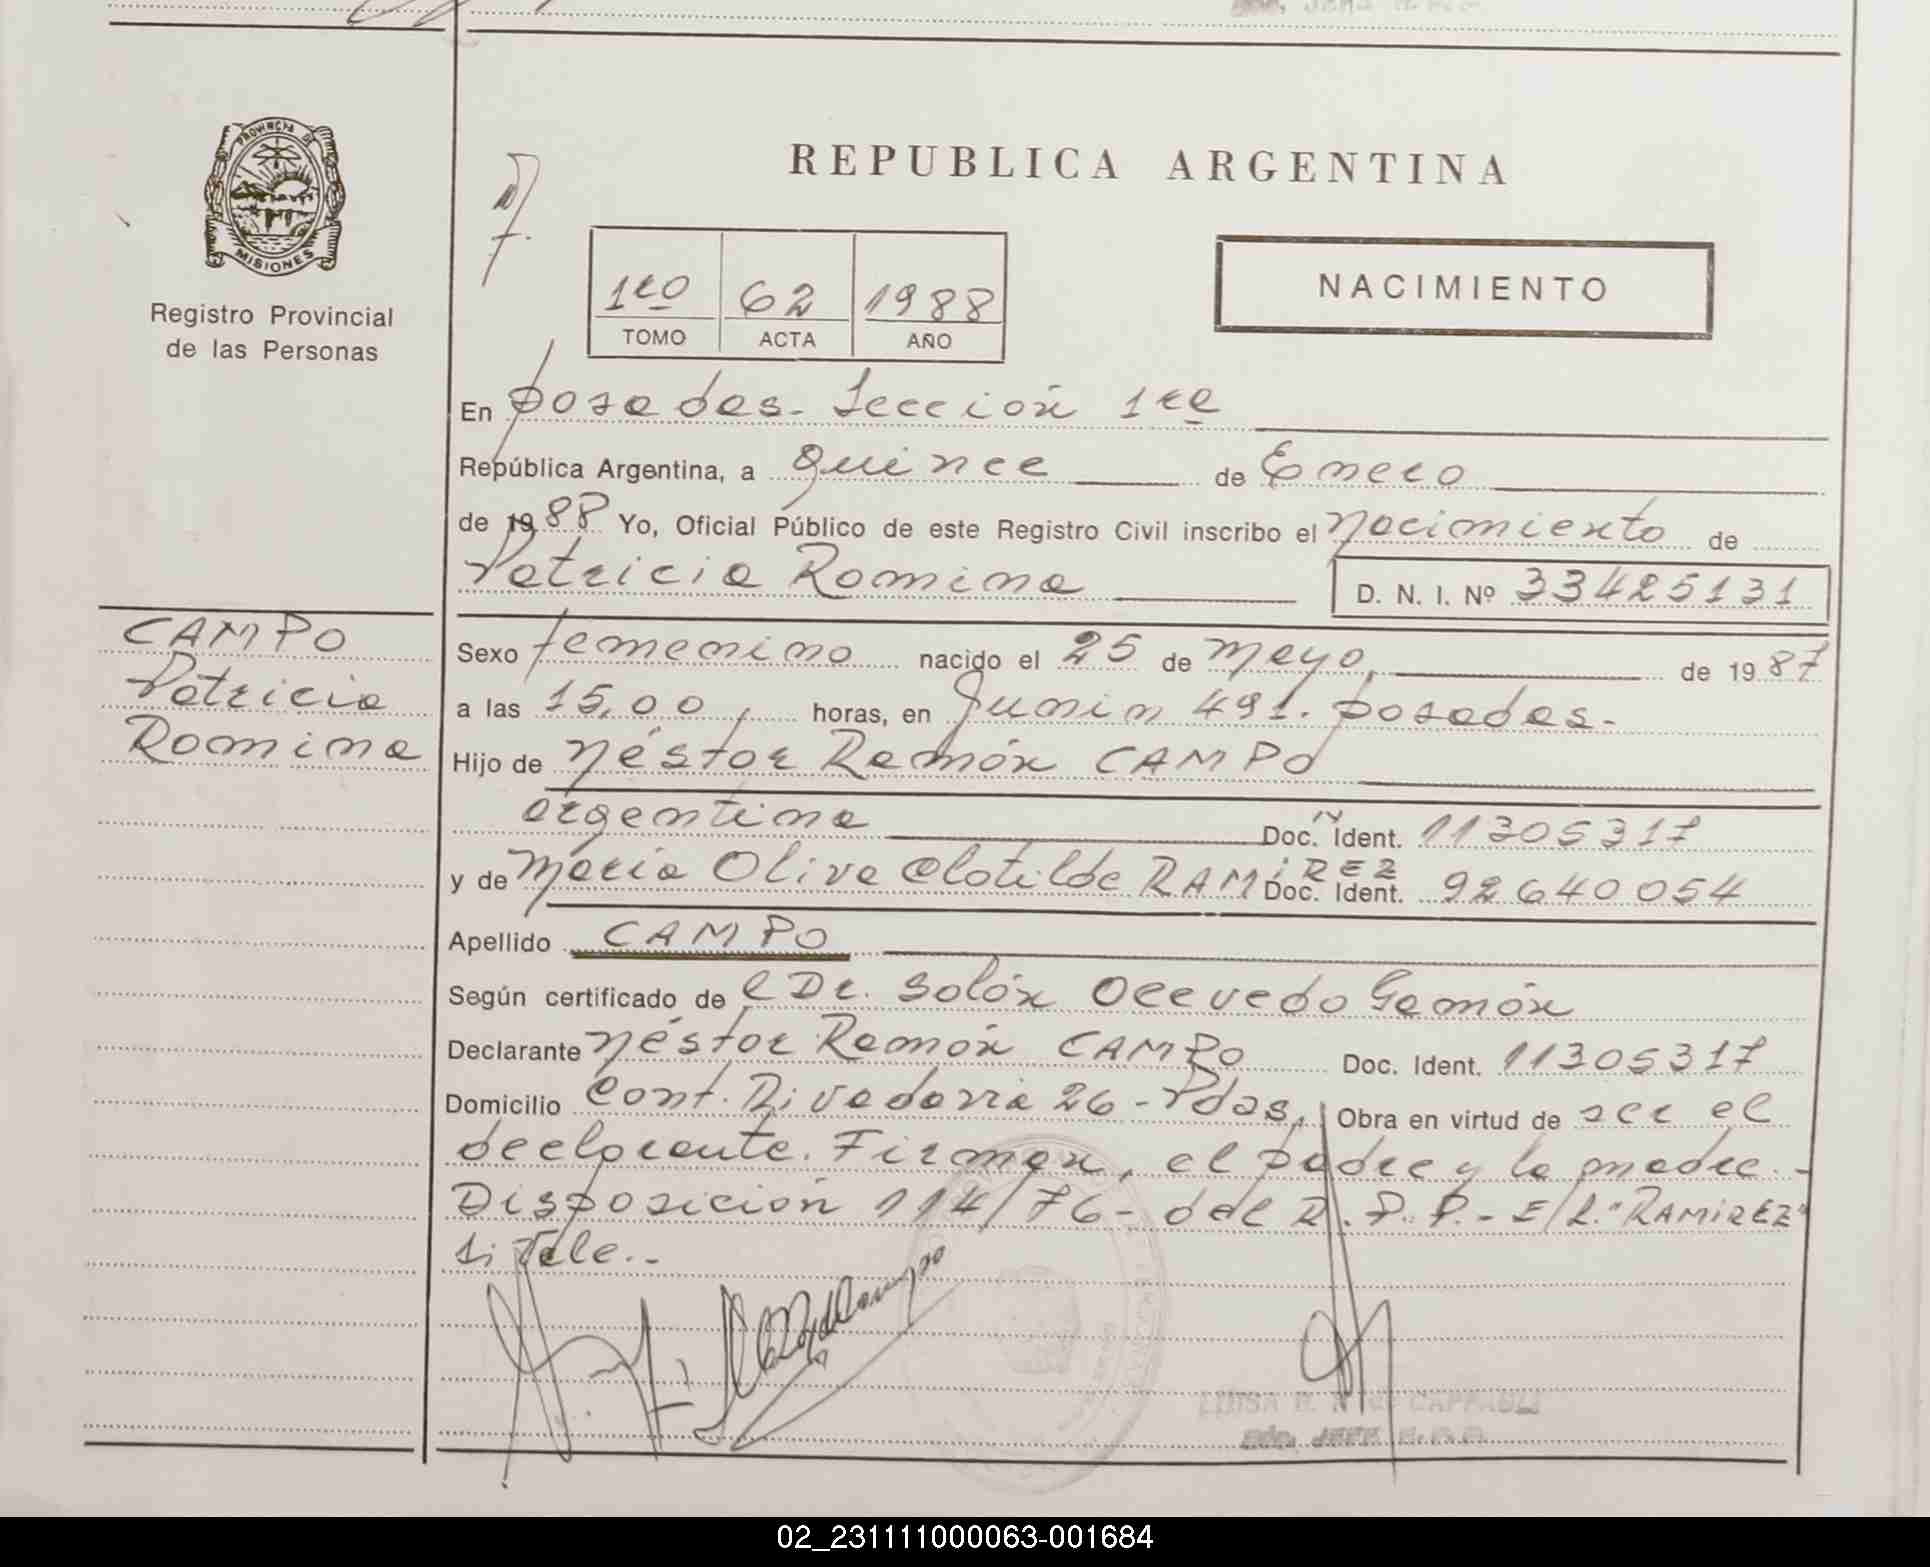 PROVINCIA DE
MISIONES
Registro Provincial
de las Personas
REPUBLICA ARGENTINA
1ro 62 1988
TOMO ACTA AÑO
NACIMIENTO
En Posadas. Sección 1ra
República Argentina, a quince de Enero
de 1988 Yo, Oficial Público de este Registro Civil inscribo el nacimiento de
Patricia Romina D. N. I. Nº 33425131
CAMPO
Patricia
Romina
Sexo femenino nacido el 25 de mayo, de 1987
a las 15,00, horas, en Junin 491. Posadas.
Hijo de Néstor Ramón CAMPO
argentina Doc. Ident. 11305317
y de María Oliva Clotilde RAMIREZ Doc. Ident. 92640054
Apellido CAMPO
Según certificado de l Dr. Solón Acevedo Gamón
Declarante Néstor Ramón CAMPO Doc. Ident. 11305317
Domicilio Cont. Rivadavia 26 - Pdas. Obra en virtud de ser el
declarante. Firman, el padre y la madre.-
Disposición 114/76- del R.P.P.- E/L."RAMIREZ"
Si Vale.-
02_231111000063-001684